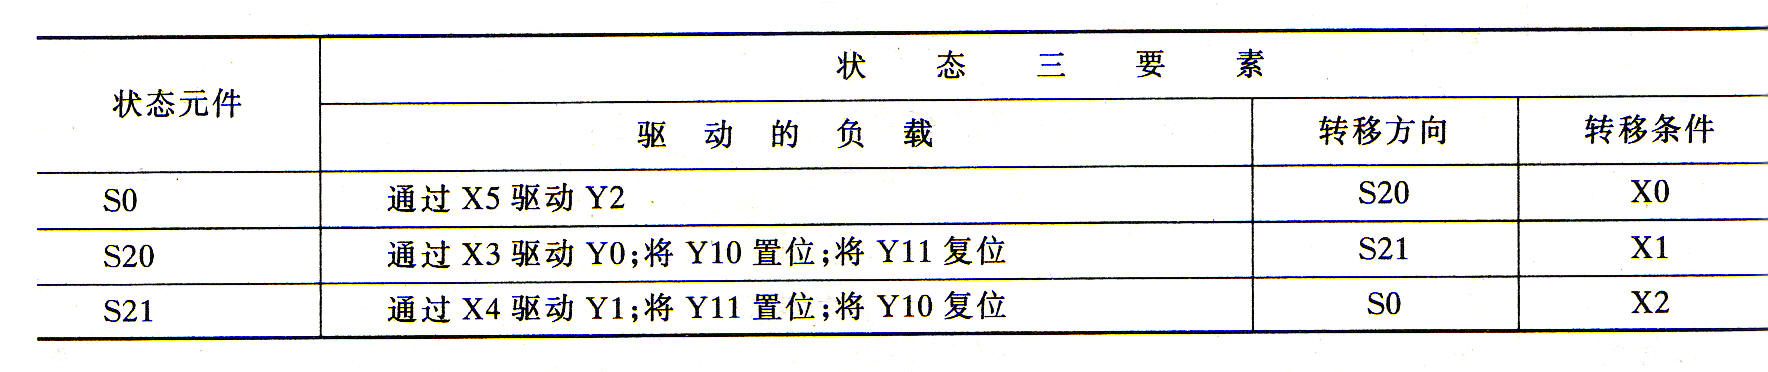 状态元件 状态三要素
驱动的负载 转移方向 转移条件
S0 通过 X5 驱动 Y2 S20 X0
S20 通过 X3 驱动 Y0;将 Y10 置位;将 Y11 复位 S21 X1
S21 通过 X4 驱动 Y1;将 Y11 置位;将 Y10 复位 S0 X2